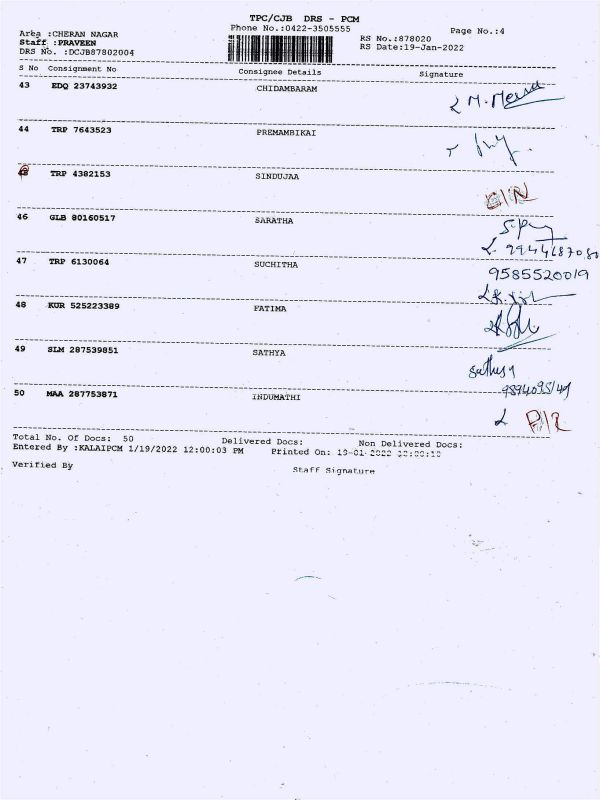 TPC/CJB DRS - PCM
Phone No.:0422-3505555
Page No.:4
Area :CHERAN NAGAR
Staff :PRAVEEN
DRS No. :DCJB87802004
RS No.:878020
RS Date:19-Jan-2022
S No Consignment No Consignee Details Signature
43 EDQ 23743932 CHIDAMBARAM
44 TRP 7643523 PREMAMBIKAI
TRP 4382153 SINDUJAA
46 GLB 80160517 SARATHA
47 TRP 6130064 SUCHITHA
9585520019
48 KUR 525223389 FATIMA
49 SLM 287539851 SATHYA
50 MAA 287753871 INDUMATHI
Total No. Of Docs: 50 Delivered Docs: Non Delivered Docs:
Entered By :KALAIPCM 1/19/2022 12:00:03 PM Printed On: 19-01-2022
Verified By Staff Signature